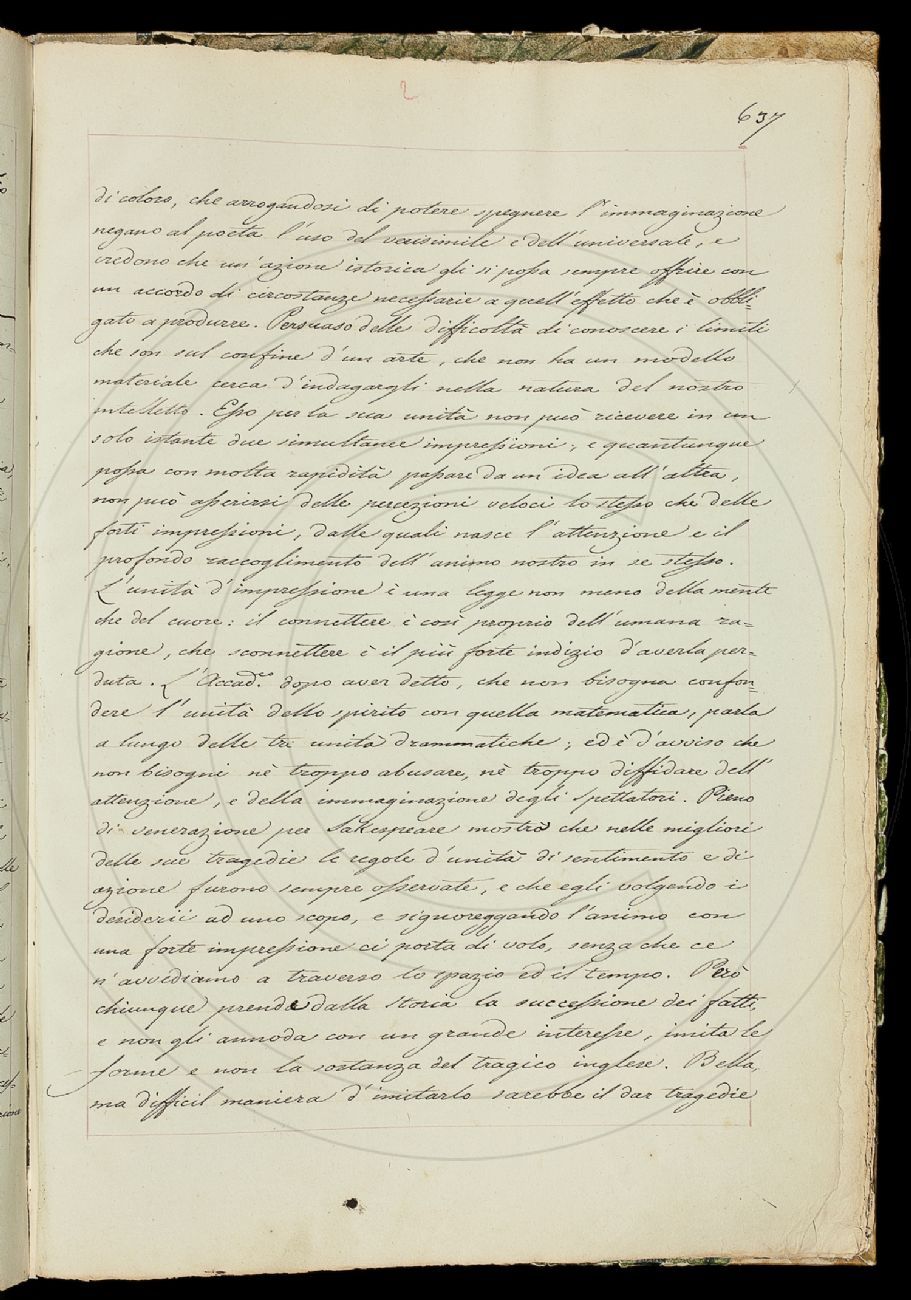 637
di coloro, che arrogandosi di potere spegnere l'immaginazione
negano al poeta l'uso del verisimile e dell'universale, e
credono che un'azione istorica gli si possa sempre offrire con
un accordo di circostanze necessarie a quell'effetto che è obbli=
gato a produrre. Persuaso delle difficoltà di conoscere i limiti
che son sul confine d'un arte, che non ha un modello
materiale cerca d'indagargli nella natura del nostro
intelletto. Esso per la sua unità non può ricevere in un
solo istante due simultanee impressioni; e quantunque
possa con molta rapidità passare da un'idea all'altra,
non può asserirsi delle percezioni veloci lo stesso che delle
forti impressioni, dalle quali nasce l'attenzione e il
profondo raccoglimento dell'animo nostro in se stesso.
L'unità d'impressione è una legge non meno della mente
che del cuore: il connettere è così proprio dell'umana ra=
gione, che sconnettere è il più forte indizio d'averla per=
duta. L'Accad.co dopo aver detto, che non bisogna confon=
dere l'unità dello spirito con quella matematica, parla
a lungo delle tre unità drammatiche; ed è d'avviso che
non bisogni nè troppo abusare, nè troppo diffidare dell'
attenzione, e della immaginazione degli spettatori. Pieno
di venerazione per Sakespeare mostrò che nelle migliori
delle sue tragedie le regole d'unità di sentimento e di
azione furono sempre osservate, e che egli volgendo i
desiderii ad uno scopo, e signoreggando l'animo con
una forte impressione ci porta di volo, senza che ce
n'avvediamo a traverso lo spazio ed il tempo. Però
chiunque prende dalla storia la successione dei fatti,
e non gli annoda con un grande interesse, imita le
forme e non la sostanza del tragico inglese. Bella,
ma difficil maniera d'imitarlo sarebbe il dar tragedie